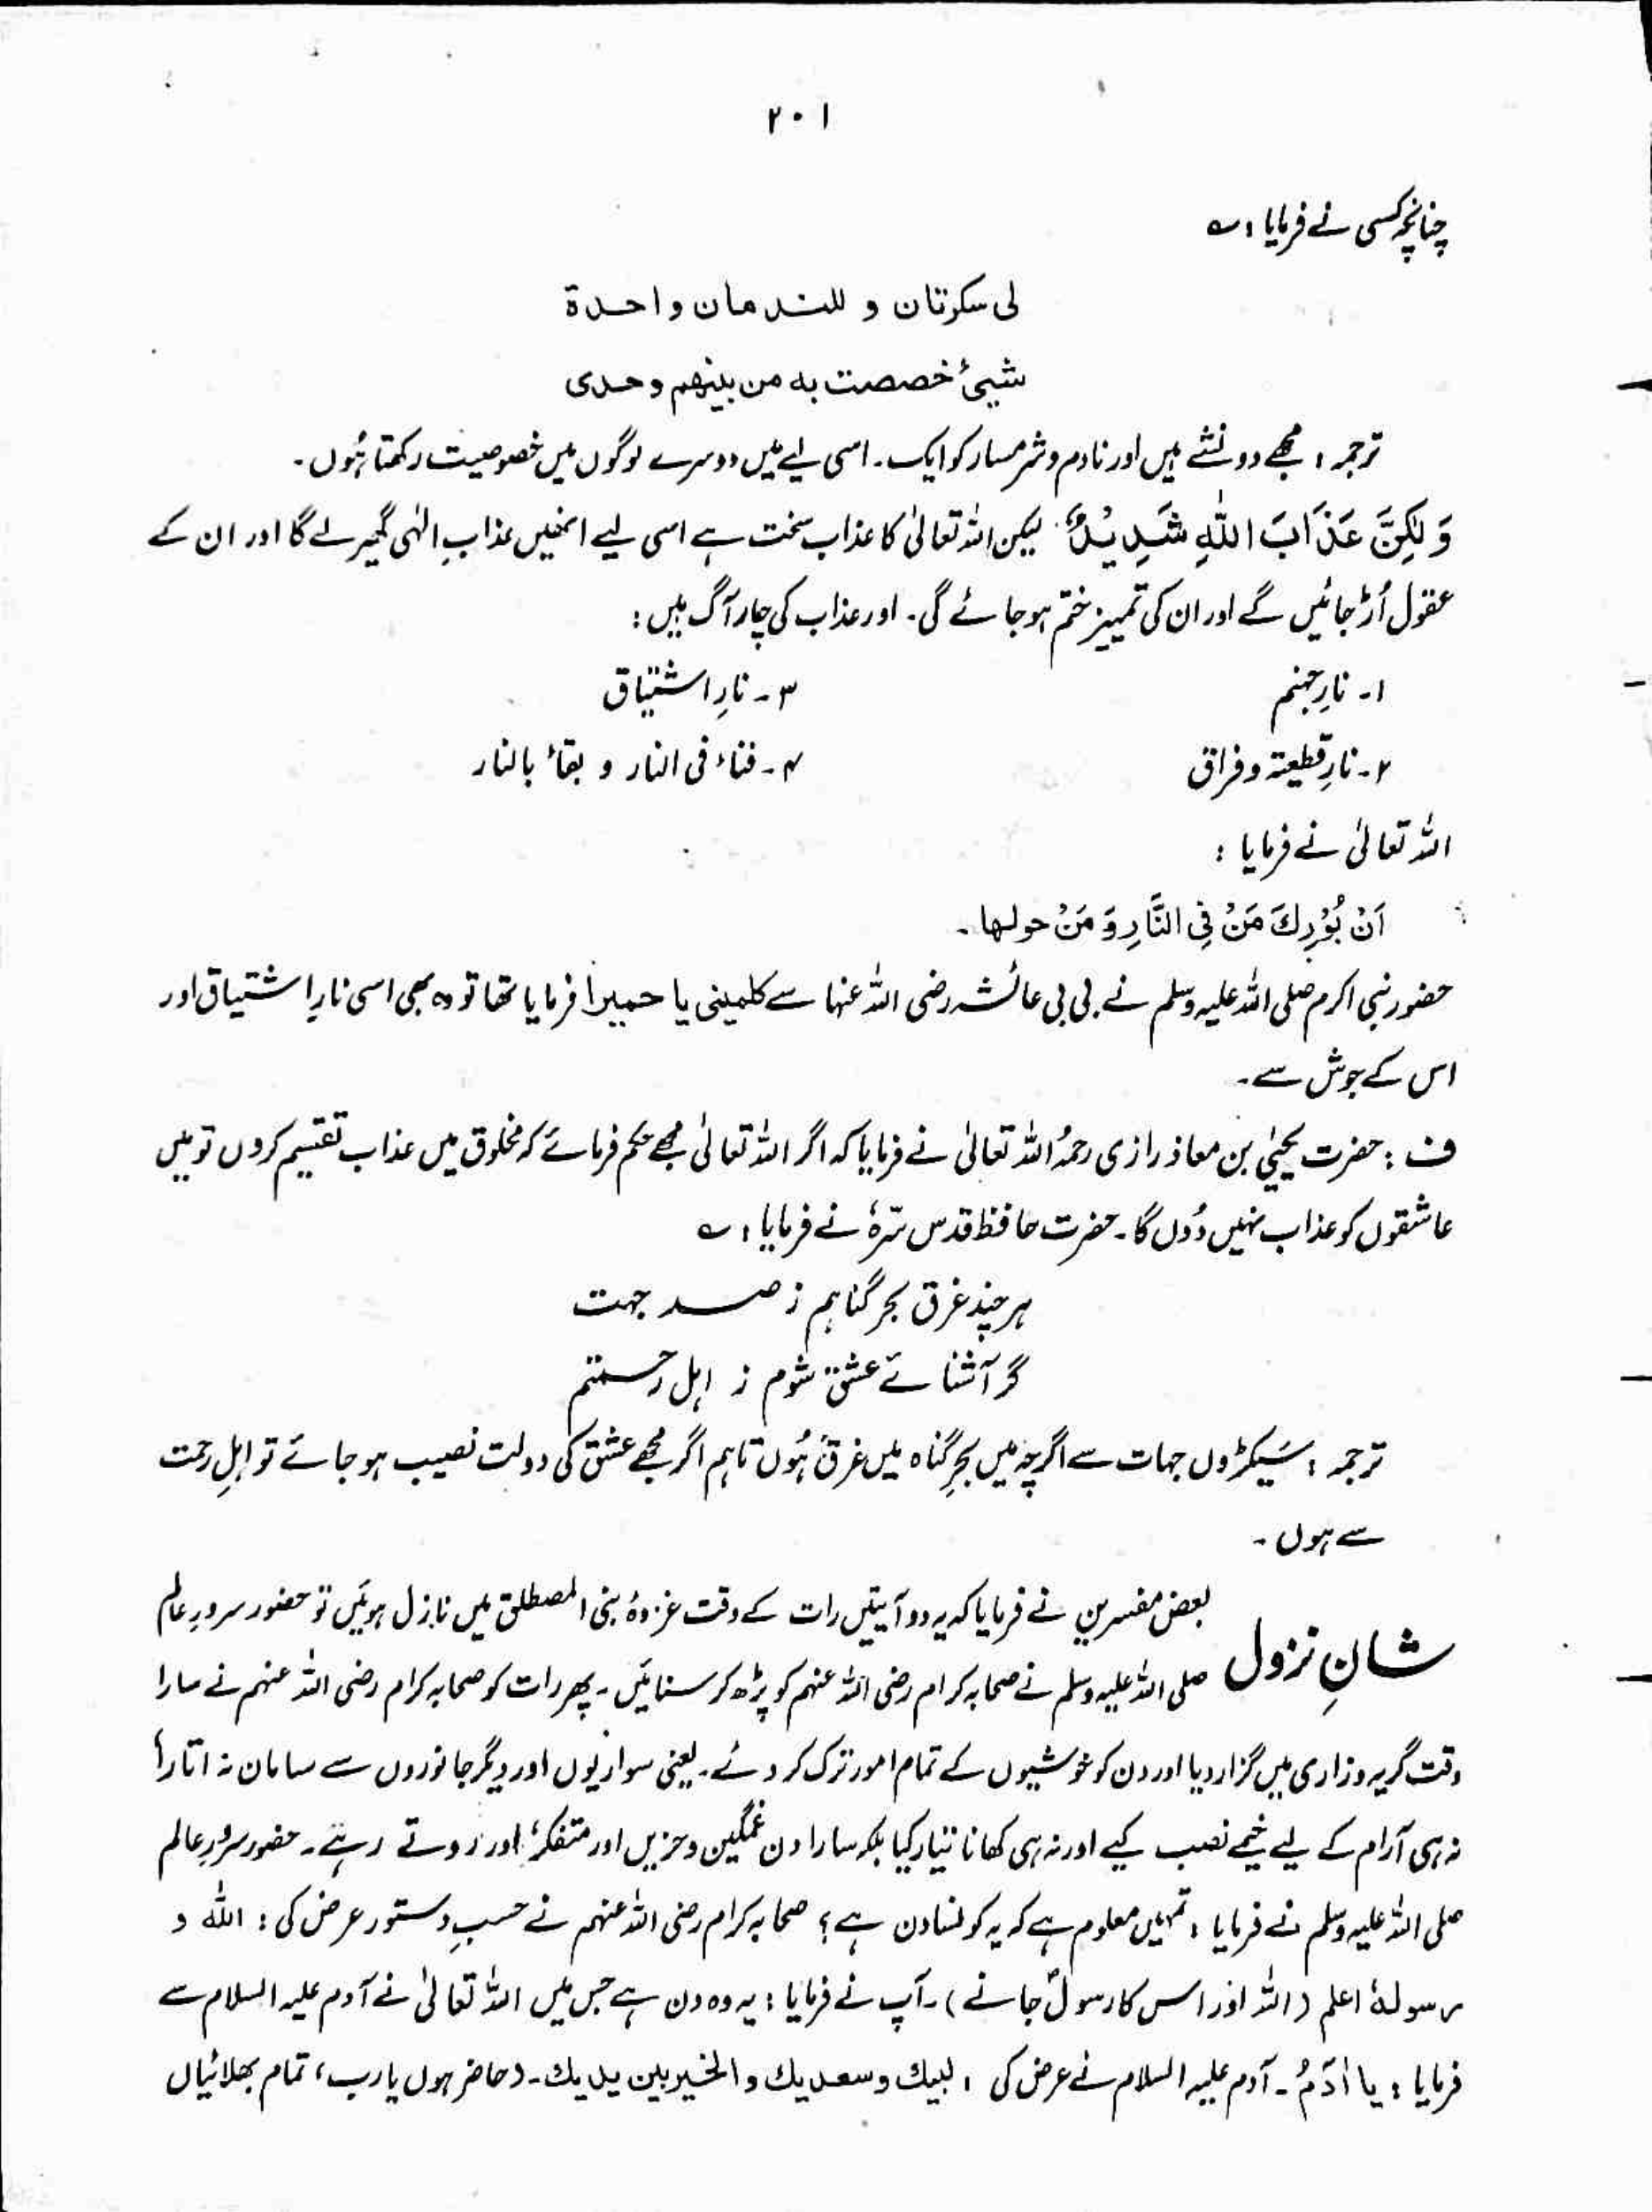 ۲۰۱
چنانچہ کسی نے فرمایا : ؎
لی سکرتان و للندمان واحدۃ
شیئ خصصت بہ من بینھم وحدی
ترجمہ : مجھے دو نشے ہیں اور نادم و شرمسار کو ایک۔ اسی لیے میں دوسرے لوگوں میں خصوصیت رکھتا ہُوں۔
وَ لٰکِنَّ عَذَابَ اللّٰہِ شَدِیْدٌ لیکن اللہ تعالیٰ کا عذاب سخت ہے اسی لیے انھیں عذابِ الٰہی گھیر لے گا اور ان کے
عقول اُڑ جائیں گے اور ان کی تمییز ختم ہو جائے گی۔ اور عذاب کی چار آگ ہیں :
۱۔ نارِ جہنم
۳۔ نارِ اشتیاق
۲۔ نارِ قطیعۃ و فراق
۴۔ فناء فی النار و بقاء بالنار
اللہ تعالیٰ نے فرمایا :
اَنْ بُوْرِكَ مَنْ فِی النَّارِ وَ مَنْ حولھا ۔
حضور نبی اکرم صلی اللہ علیہ وسلم نے بی بی عائشہ رضی اللہ عنہا سے کلمینی یا حمیرا فرمایا تھا تو وہ بھی اسی نارِ اشتیاق اور
اس کے جوش سے۔
ف : حضرت یحییٰ بن معاذ رازی رحمہُ اللہ تعالیٰ نے فرمایا کہ اگر اللہ تعالیٰ مجھے حکم فرمائے کہ مخلوق میں عذاب تقسیم کروں تو میں
عاشقوں کو عذاب نہیں دُوں گا۔ حضرت حافظ قدس سّرہٗ نے فرمایا : ؎
ہر چند غرق بحر گناہم ز صد جہت
گر آشنائے عشق شوم ز اہل رحمتم
ترجمہ : سَیکڑوں جہات سے اگرچہ میں بحرِ گناہ میں غرق ہُوں تاہم اگر مجھے عشق کی دولت نصیب ہو جائے تو اہلِ رحمت
سے ہوں ۔
بعض مفسرین نے فرمایا کہ یہ دو آیتیں رات کے وقت غزوۂ بنی المصطلق میں نازل ہوئیں تو حضور سرورِ عالم
شانِ نزول
صلی اللہ علیہ وسلم نے صحابہ کرام رضی اللہ عنہم کو پڑھ کر سنائیں ۔ پھر رات کو صحابہ کرام رضی اللہ عنہم نے سارا
وقت گریہ وزاری میں گزار دیا اور دن کو خوشیوں کے تمام امور ترک کر دئے۔ یعنی سواریوں اور دیگر جانوروں سے سامان نہ اتارا
نہ ہی آرام کے لیے خیمے نصب کیے اور نہ ہی کھانا تیار کیا بلکہ سارا دن غمگین و حزیں اور متفکر اور روتے رہے۔ حضور سرورِ عالم
صلی اللہ علیہ وسلم نے فرمایا : تمہیں معلوم ہے کہ یہ کونسا دن ہے ؟ صحابہ کرام رضی اللہ عنہم نے حسبِ دستور عرض کی : اللہ و
رسولہٗ اعلم (اللہ اور اس کا رسول جانے) ۔ آپ نے فرمایا : یہ وہ دن ہے جس میں اللہ تعالیٰ نے آدم علیہ السلام سے
فرمایا : یا اٰدَمُ ۔ آدم علیہ السلام نے عرض کی : لبیك وسعدیك والخیر بین یدیك۔ (حاضر ہوں یا رب ، تمام بھلائیاں